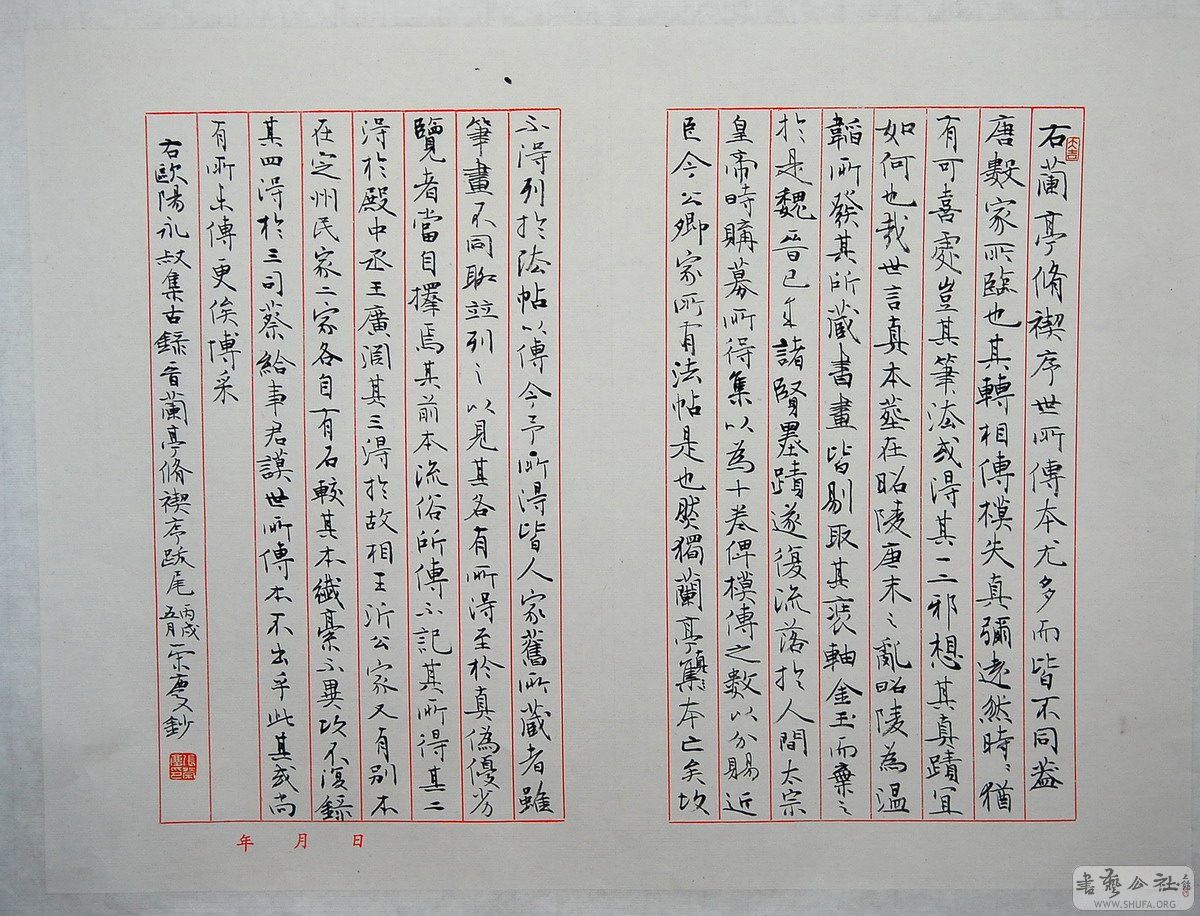 右蘭亭脩禊序世所傳本尤多而皆不同蓋
唐數家所臨也其轉相傳模失真彌遠然時〻猶
有可喜處豈其筆法或得其一二邪想其真蹟宜
如何也哉世言真本葬在昭陵唐末之亂昭陵為溫
韜所發其所藏書畫皆剔取其裝軸金玉而棄之
於是魏晉已來諸賢墨蹟遂復流落於人間太宗
皇帝時購募所得集以為十卷俾模傳之數以分賜近
臣今公卿家所有法帖是也然獨蘭亭真本亡矣故
不得列於法帖以傳今予所得皆人家舊所藏者雖
筆畫不同聊並列之以見其各有所得至於真偽優劣
覽者當自擇焉其前本流俗所傳不記其所得其二
得於殿中丞王廣淵其三得於故相王沂公家又有別本
在定州民家二家各自有石較其本纖毫不異故不復錄
其四得於三司蔡給事君謨世所傳本不出乎此其或尚
有所未傳更俟博采
右歐陽永叔集古錄晉蘭亭脩禊序跋尾 丙戌五月 榮慶又鈔
年 月 日
書藝公社
WWW.SHUFA.ORG